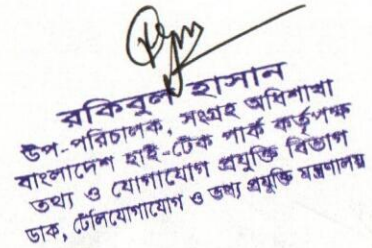 রকিবুল হাসান
উপ-পরিচালক, সংগ্রহ অধিশাখা
বাংলাদেশ হাই-টেক পার্ক কর্তৃপক্ষ
তথ্য ও যোগাযোগ প্রযুক্তি বিভাগ
ডাক, টেলিযোগাযোগ ও তথ্য প্রযুক্তি মন্ত্রণালয়